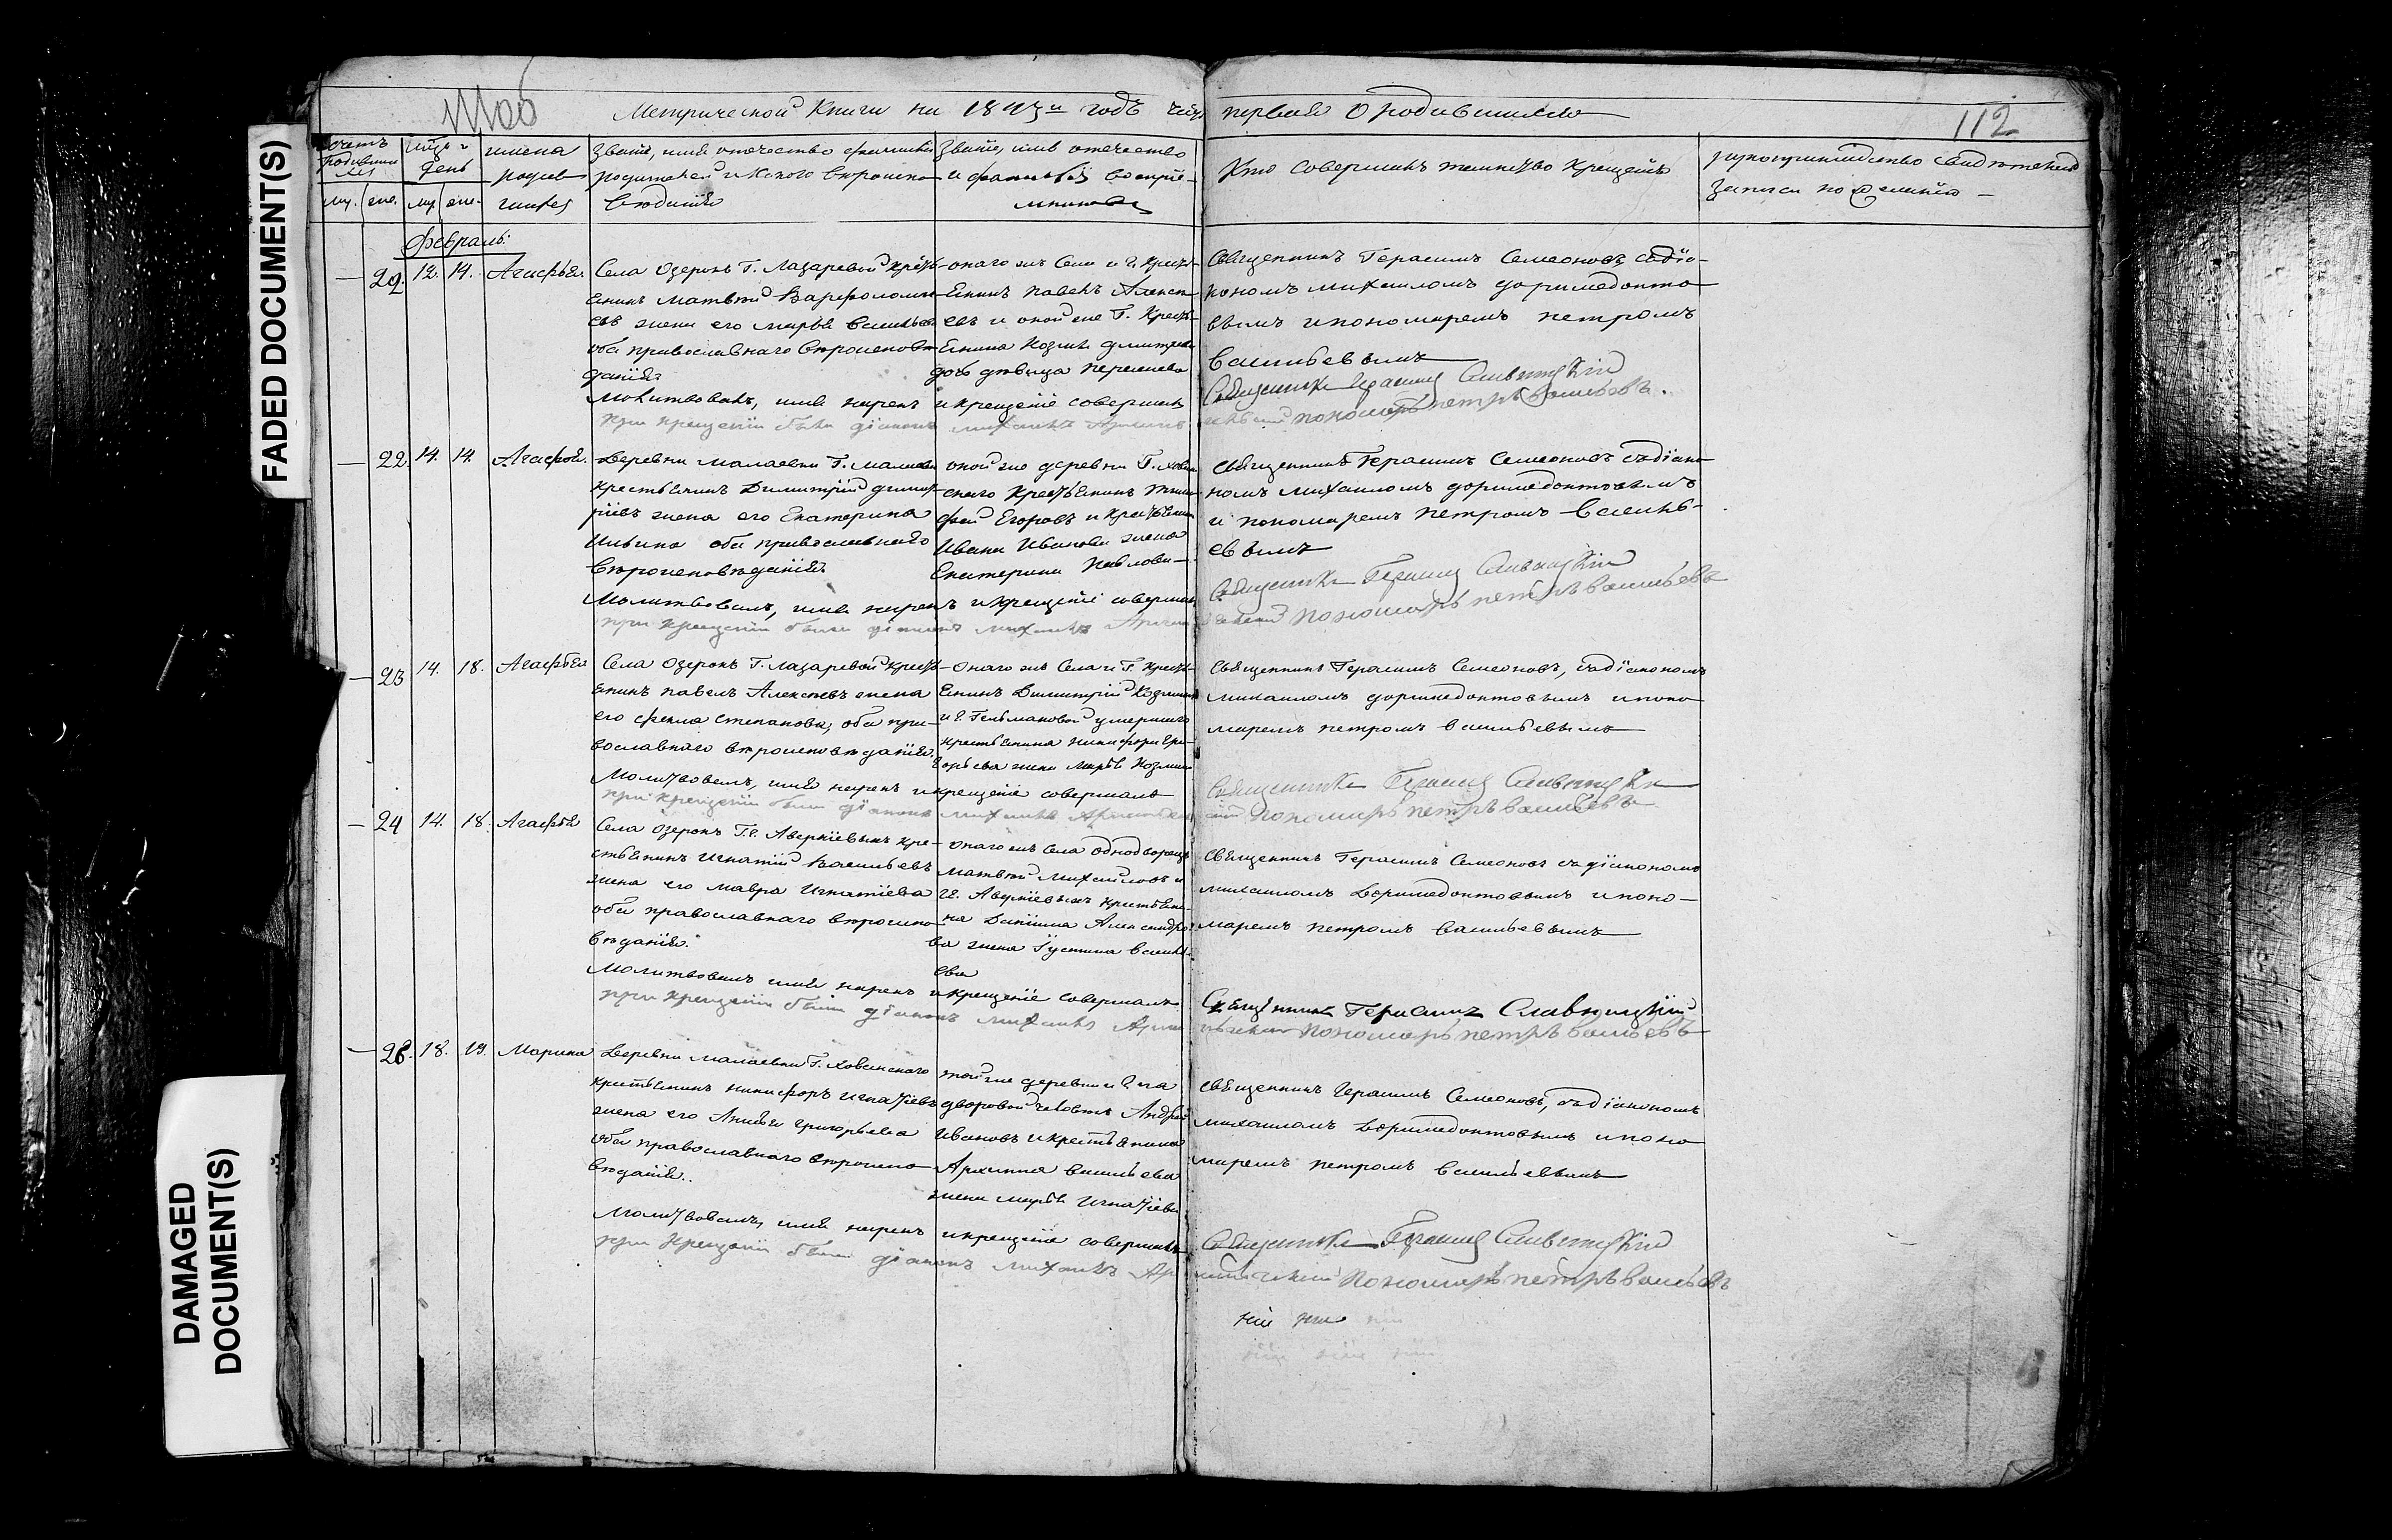 FADED DOCUMENT(S)
DAMAGED
DOCUMENT(S)
Метрической Книги на 1843й годъ часть первая О родившихся
112
Счетъ родившихся
мѣсяцъ и день
имена родившихся
Званіе, имя отечество фамилія
родителей и какого вѣроисповѣданія
Званіе, имя отечество
и фамилія воспріемниковъ
Кто совершалъ таинство крещенія
рукоприкладство свидѣтелей
записи по желанію
му. же. му. же.
Февраль:
22. 12. 14. Агафья.
Села Озерокъ Г. Лазаревой крестьянинъ
Матвѣй Варфоломеевъ
жена его Марья Васильева
оба православнаго вѣроисповѣданія
онаго же села и Г. крестьянинъ
Павелъ Алексѣевъ
и оной же Г. крестьянина
Козмы Димитріева
дочь дѣвица
Священникъ Герасимъ Семеоновъ съ діакономъ
Михаиломъ Доримедонтовымъ
и пономаремъ Петромъ
Васильевымъ
Молитвовалъ, имя нарекъ и крещеніе совершалъ
Священникъ Герасимъ
при крещеніи были діаконъ Михаилъ
пономарь Петръ Васильевъ.
22. 14. 14. Агафья.
Деревни Малаевки Г.
крестьянинъ Димитрій Димитріевъ
жена его Екатерина
Ильина оба православнаго
вѣроисповѣданія
оной же деревни Г.
крестьянинъ
Егоровъ и крестьянина
Ивана Иванова жена
Екатерина Павлова
Священникъ Герасимъ Семеоновъ съ діакономъ
Михаиломъ Доримедонтовымъ
и пономаремъ Петромъ Васильевымъ
Молитвовалъ, имя нарекъ и крещеніе совершалъ
Священникъ Герасимъ
при крещеніи были діаконъ Михаилъ
пономарь Петръ Васильевъ
23 14. 18. Агафья
Села Озерокъ Г. Лазаревой крестьянинъ
Павелъ Алексѣевъ жена
его Фекла Степанова, оба православнаго
вѣроисповѣданія.
онаго же села и Г. крестьянинъ
Димитрій Козминъ
и Г. умершаго
крестьянина Никифора
жена Марья Козмина
Священникъ Герасимъ Семеоновъ, съ діакономъ
Михаиломъ Доримедонтовымъ и пономаремъ
Петромъ Васильевымъ
Молитвовалъ, имя нарекъ и крещеніе совершалъ
Священникъ Герасимъ
при крещеніи были діаконъ Михаилъ
пономарь Петръ Васильевъ
24 14. 18. Агафья
Села Озерокъ Г.г. Аверкіевыхъ крестьянинъ
Игнатій Васильевъ
жена его Мавра Игнатіева
оба православнаго вѣроисповѣданія.
онаго же села однодворецъ
Матвѣй Михайловъ и
Г.г. Аверкіевыхъ крестьянина
Даніила Александрова
жена Іустина Васильева
Священникъ Герасимъ Семеоновъ съ діакономъ
Михаиломъ Доримедонтовымъ и пономаремъ
Петромъ Васильевымъ
Молитвовалъ имя нарекъ и крещеніе совершалъ
Священникъ Герасимъ
при крещеніи были діаконъ Михаилъ
пономарь Петръ Васильевъ
18. 19. Марина
Деревни Малаевки Г. Хованскаго
крестьянинъ Никифоръ Игнатіевъ
жена его Григорьева
оба православнаго вѣроисповѣданія.
той же деревни и Г.на
дворовой человѣкъ Андрей
Ивановъ и крестьянина
Архиппа Васильева
жена Марья Игнатіева
Священникъ Герасимъ Семеоновъ, съ діакономъ
Михаиломъ Доримедонтовымъ и пономаремъ
Петромъ Васильевымъ
Молитвовалъ, имя нарекъ и крещеніе совершалъ
Священникъ Герасимъ
при крещеніи были діаконъ Михаилъ
пономарь Петръ Васильевъ